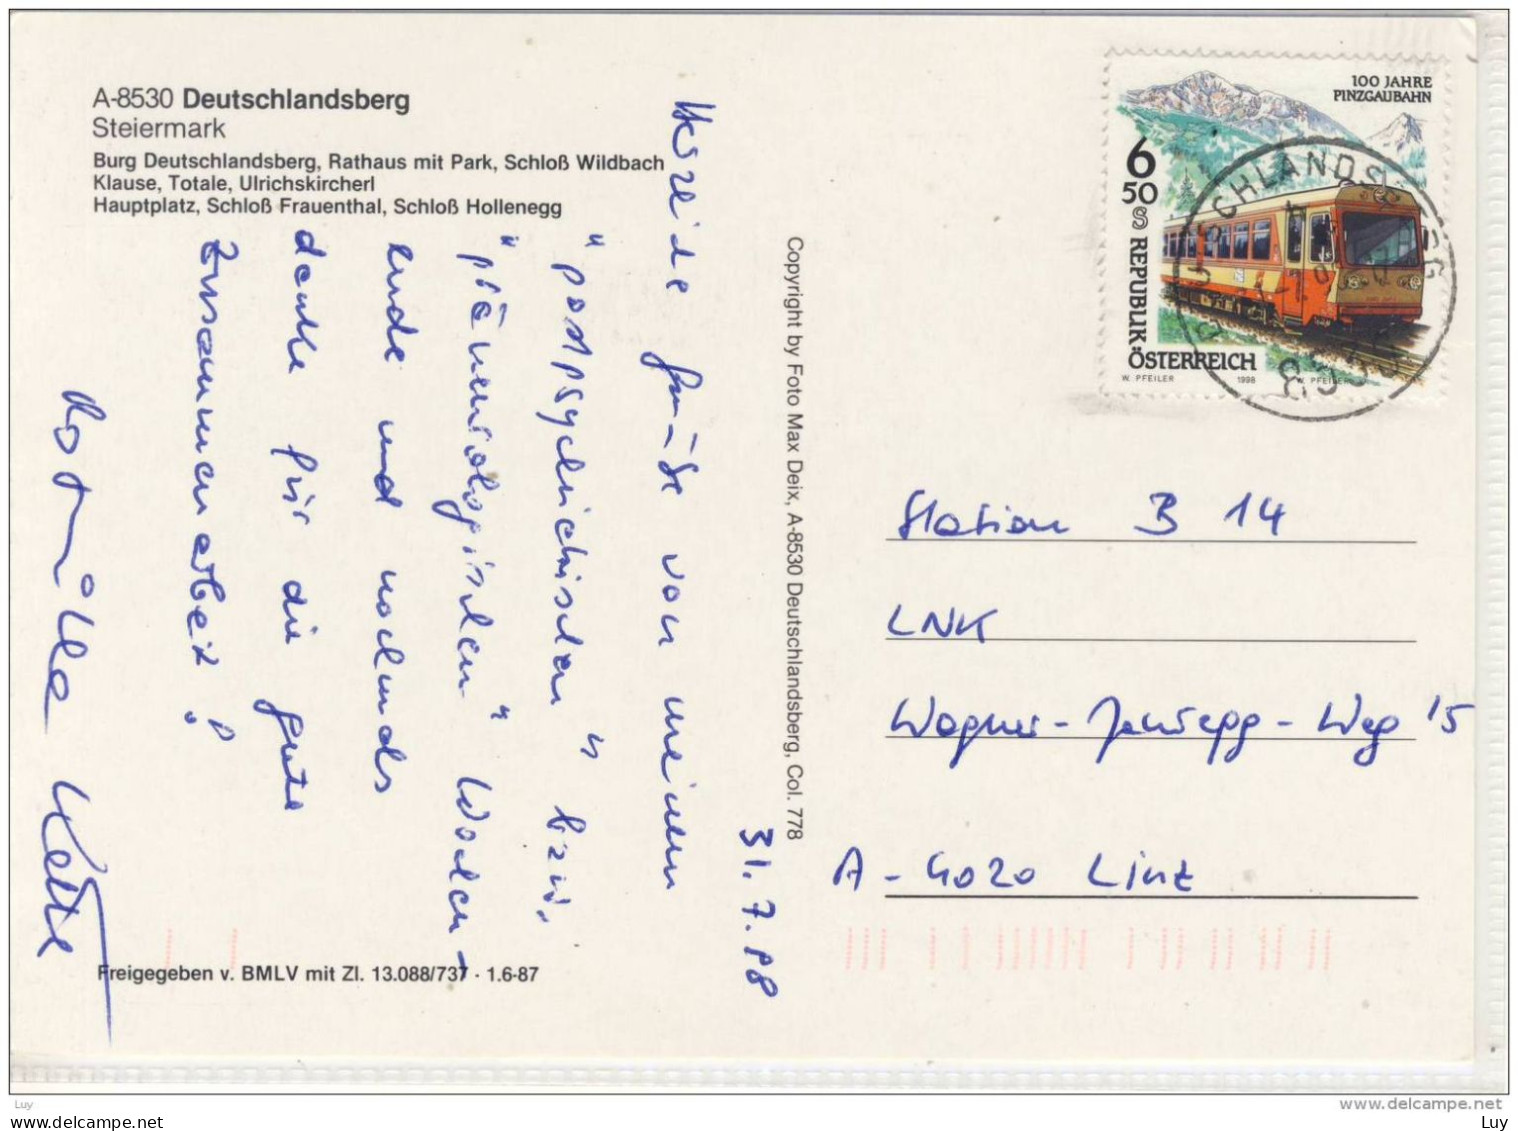 A-8530 Deutschlandsberg
Steiermark
Burg Deutschlandsberg, Rathaus mit Park, Schloß Wildbach
Klause, Totale, Ulrichskircherl
Hauptplatz, Schloß Frauenthal, Schloß Hollenegg
Grüße von meinem
"postpsychiatrischen" bzw.
"präneurologischen" Wochen-
ende und nochmals
danke für die gute
Zusammenarbeit!
31. 7. 98
Copyright by Foto Max Deix, A-8530 Deutschlandsberg, Col. 778
Freigegeben v. BMLV mit Zl. 13.088/737 · 1.6-87
100 JAHRE
PINZGAUBAHN
6
50 S
REPUBLIK
ÖSTERREICH
W. PFEILER 1998 W. PFEILER
8530
Station B 14
LNK
Wagner-Jauregg-Weg 15
A-4020 Linz
www.delcampe.net
Luy
www.delcampe.net
Luy